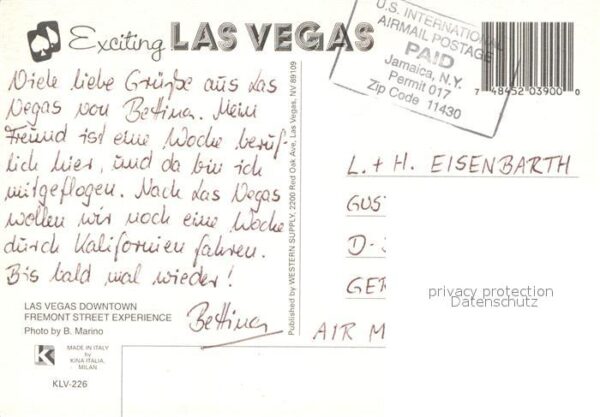 Exciting LAS VEGAS
Viele liebe Grüße aus Las
Vegas von Bettina. Mein
Freund ist eine Woche beruf-
lich hier, und da bin ich
mitgeflogen. Nach Las Vegas
wollen wir noch eine Woche
durch Kalifornien fahren.
Bis bald mal wieder!
Bettina
LAS VEGAS DOWNTOWN
FREMONT STREET EXPERIENCE
Photo by B. Marino
K
MADE IN ITALY
by
KINA ITALIA,
MILAN
KLV-226
Published by WESTERN SUPPLY, 2200 Red Oak Ave, Las Vegas, NV-89109
U.S. INTERNATIONAL
AIRMAIL POSTAGE
PAID
Jamaica, N.Y.
Permit 017
Zip Code 11430
7 48452 03900 0
L. + H. EISENBARTH
GUS
D-
GER
AIR M
privacy protection
Datenschutz